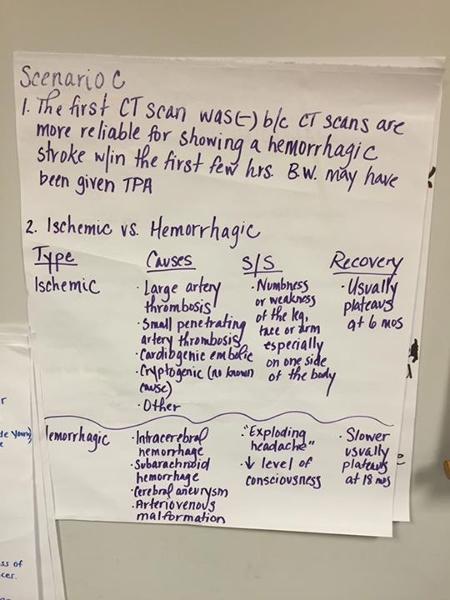 Scenario C
1. The first CT scan was (-) b/c CT scans are
more reliable for showing a hemorrhagic
stroke w/in the first few hrs. B.W. may have
been given TPA
2. Ischemic vs. Hemorrhagic
Type Causes S/S Recovery
Ischemic
· Large artery
thrombosis
· Small penetrating
artery thrombosis
· Cardiogenic embolic
· Cryptogenic (no known
cause)
· Other
· Numbness
or weakness
of the leg,
face or arm
especially
on one side
of the body
· Usually
plateaus
at 6 mos
Hemorrhagic
· Intracerebral
hemorrhage
· Subarachnoid
hemorrhage
· Cerebral aneurysm
· Arteriovenous
malformation
· "Exploding
headache"
· ↓ level of
consciousness
· Slower
usually
plateaus
at 18 mos
ss of
ces.